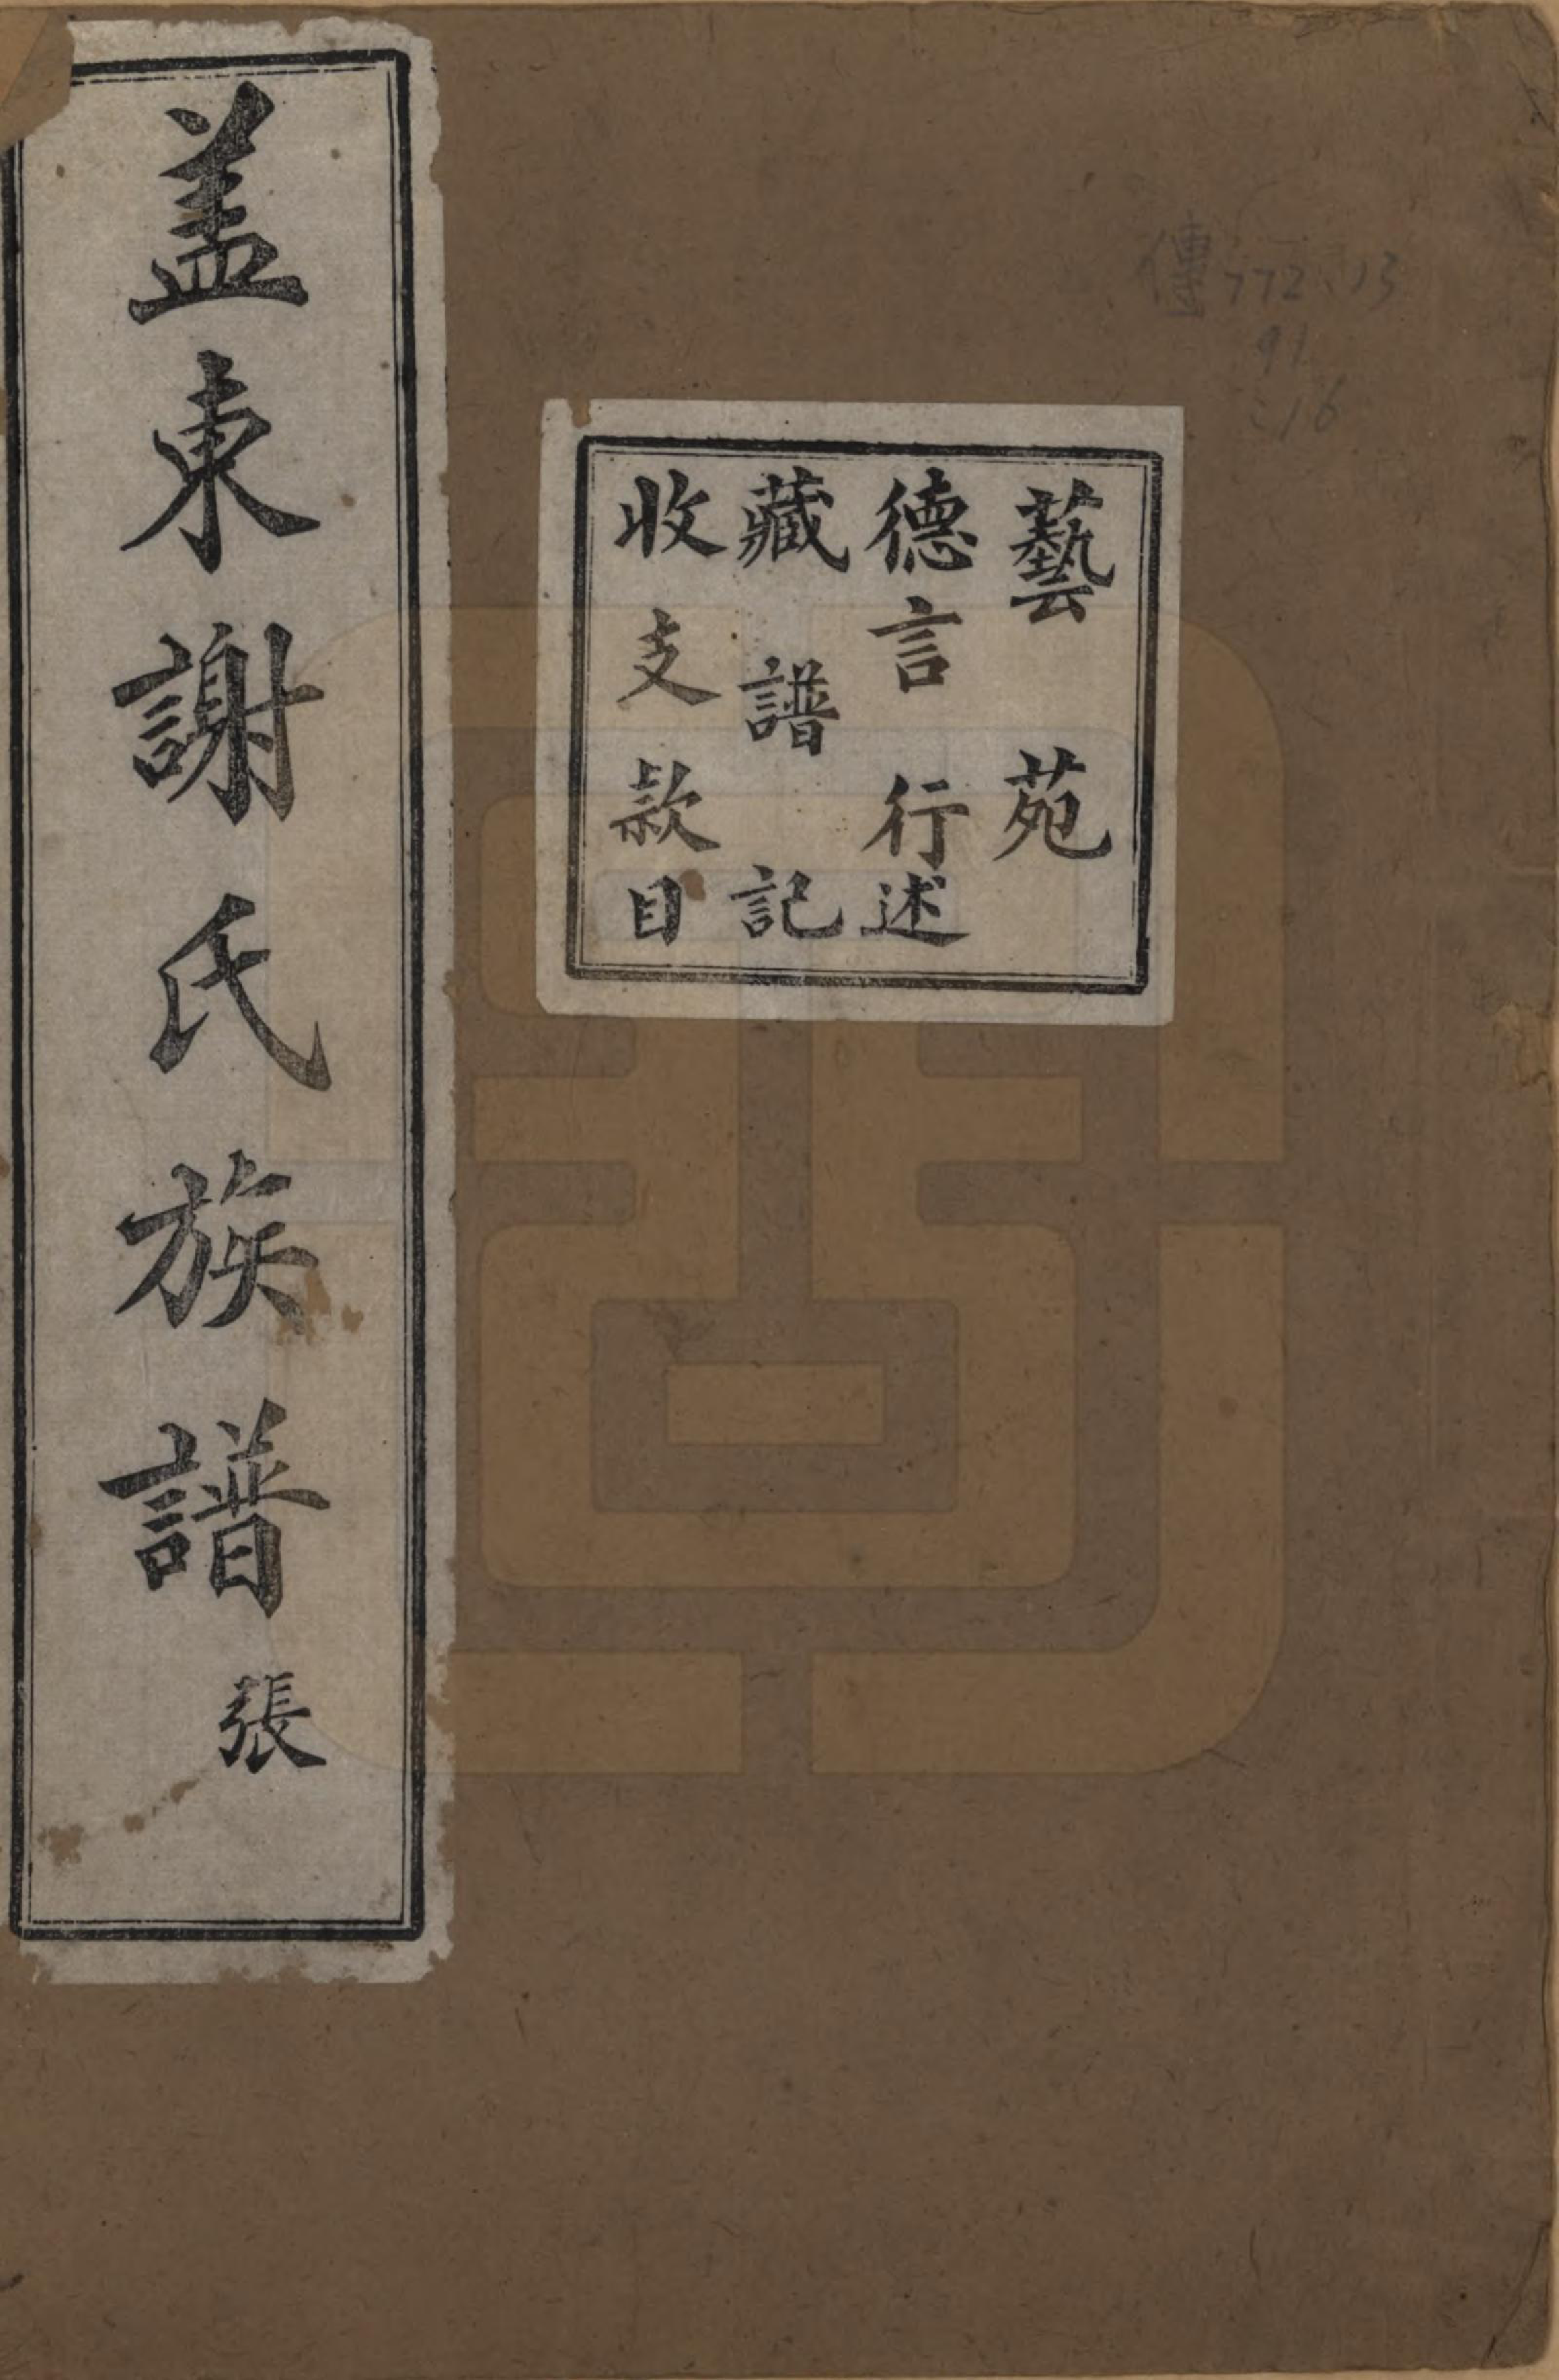 藝苑
德言行述
藏譜記
收支款目
盖東謝氏族譜 張
傳772.13
91
:16